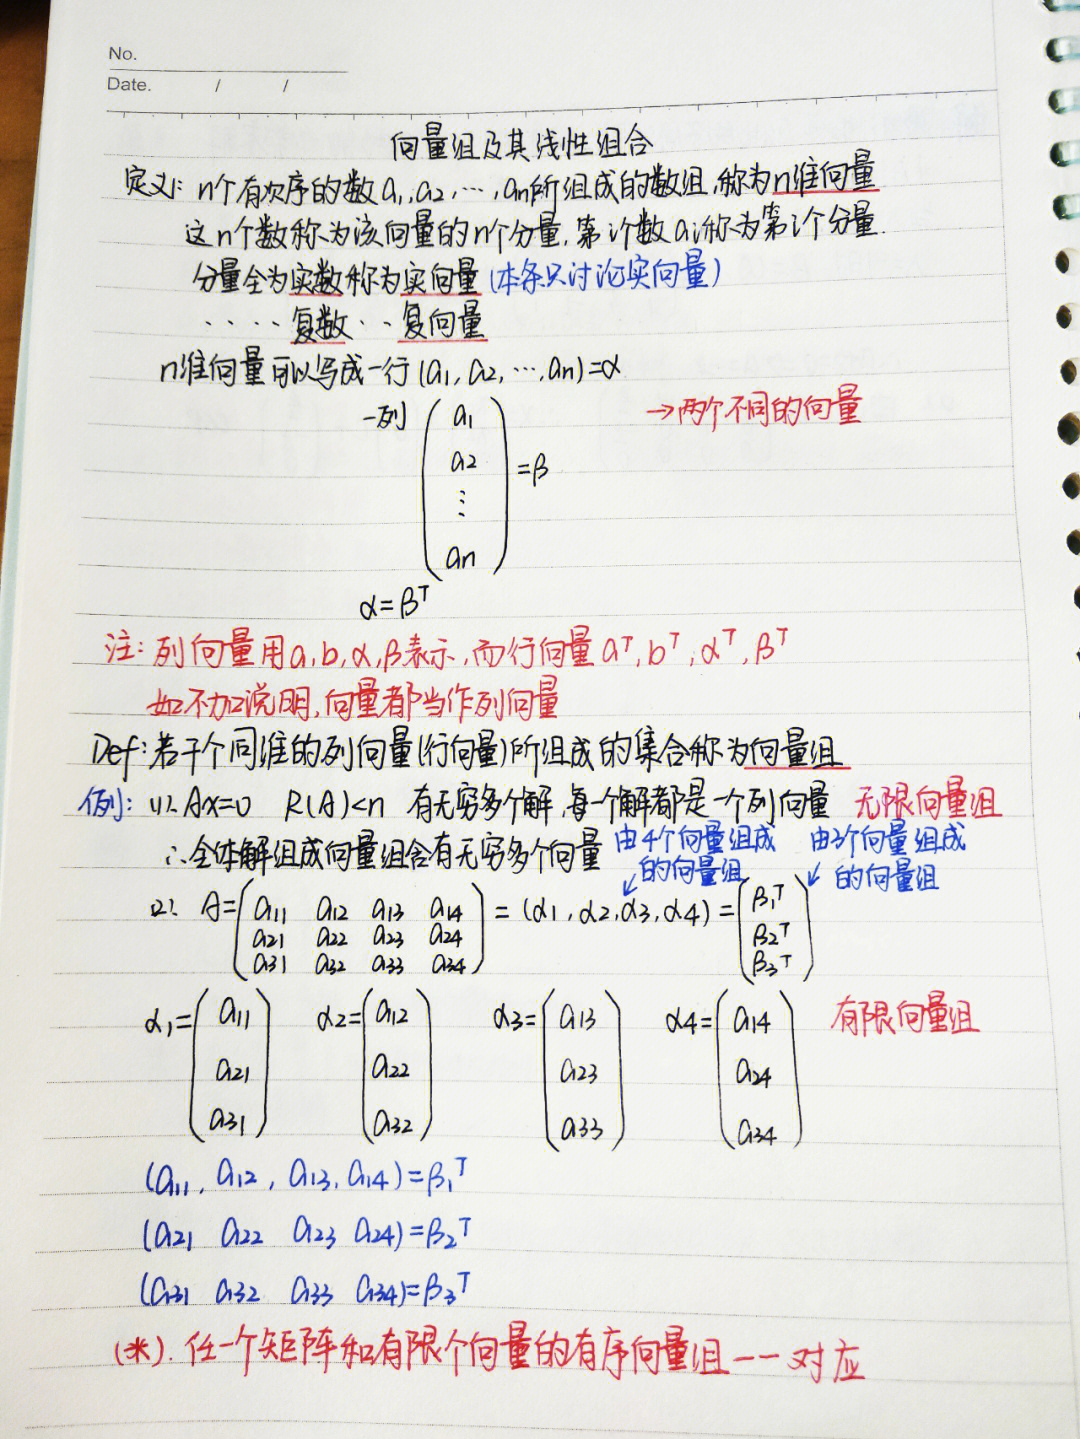 No.
Date. / /
向量组及其线性组合
定义: n个有次序的数a1,a2,…,an所组成的数组,称为n维向量
这n个数称为该向量的n个分量,第i个数ai称为第i个分量.
分量全为实数称为实向量(本条只讨论实向量)
····复数··复向量
n维向量可以写成一行(a1,a2,…,an)=α
一列 (a1 a2 ⋮ an) =β →两个不同的向量
α=β^T
注: 列向量用a,b,α,β表示,而行向量a^T,b^T,α^T,β^T
如不加说明,向量都当作列向量
Def:若干个同维的列向量(行向量)所组成的集合称为向量组
例: (1). Ax=0 R(A)<n 有无穷多个解,每一个解都是一个列向量 无限向量组
∴全体解组成向量组含有无穷多个向量
由4个向量组成的向量组 由3个向量组成的向量组
(2). A=(a11 a12 a13 a14
a21 a22 a23 a24
a31 a32 a33 a34) = (α1,α2,α3,α4) = (β1^T β2^T β3^T)
α1=(a11 a21 a31) α2=(a12 a22 a32) α3=(a13 a23 a33) α4=(a14 a24 a34) 有限向量组
(a11, a12, a13, a14)=β1^T
(a21 a22 a23 a24)=β2^T
(a31 a32 a33 a34)=β3^T
(*). 任一个矩阵和有限个向量的有序向量组一一对应